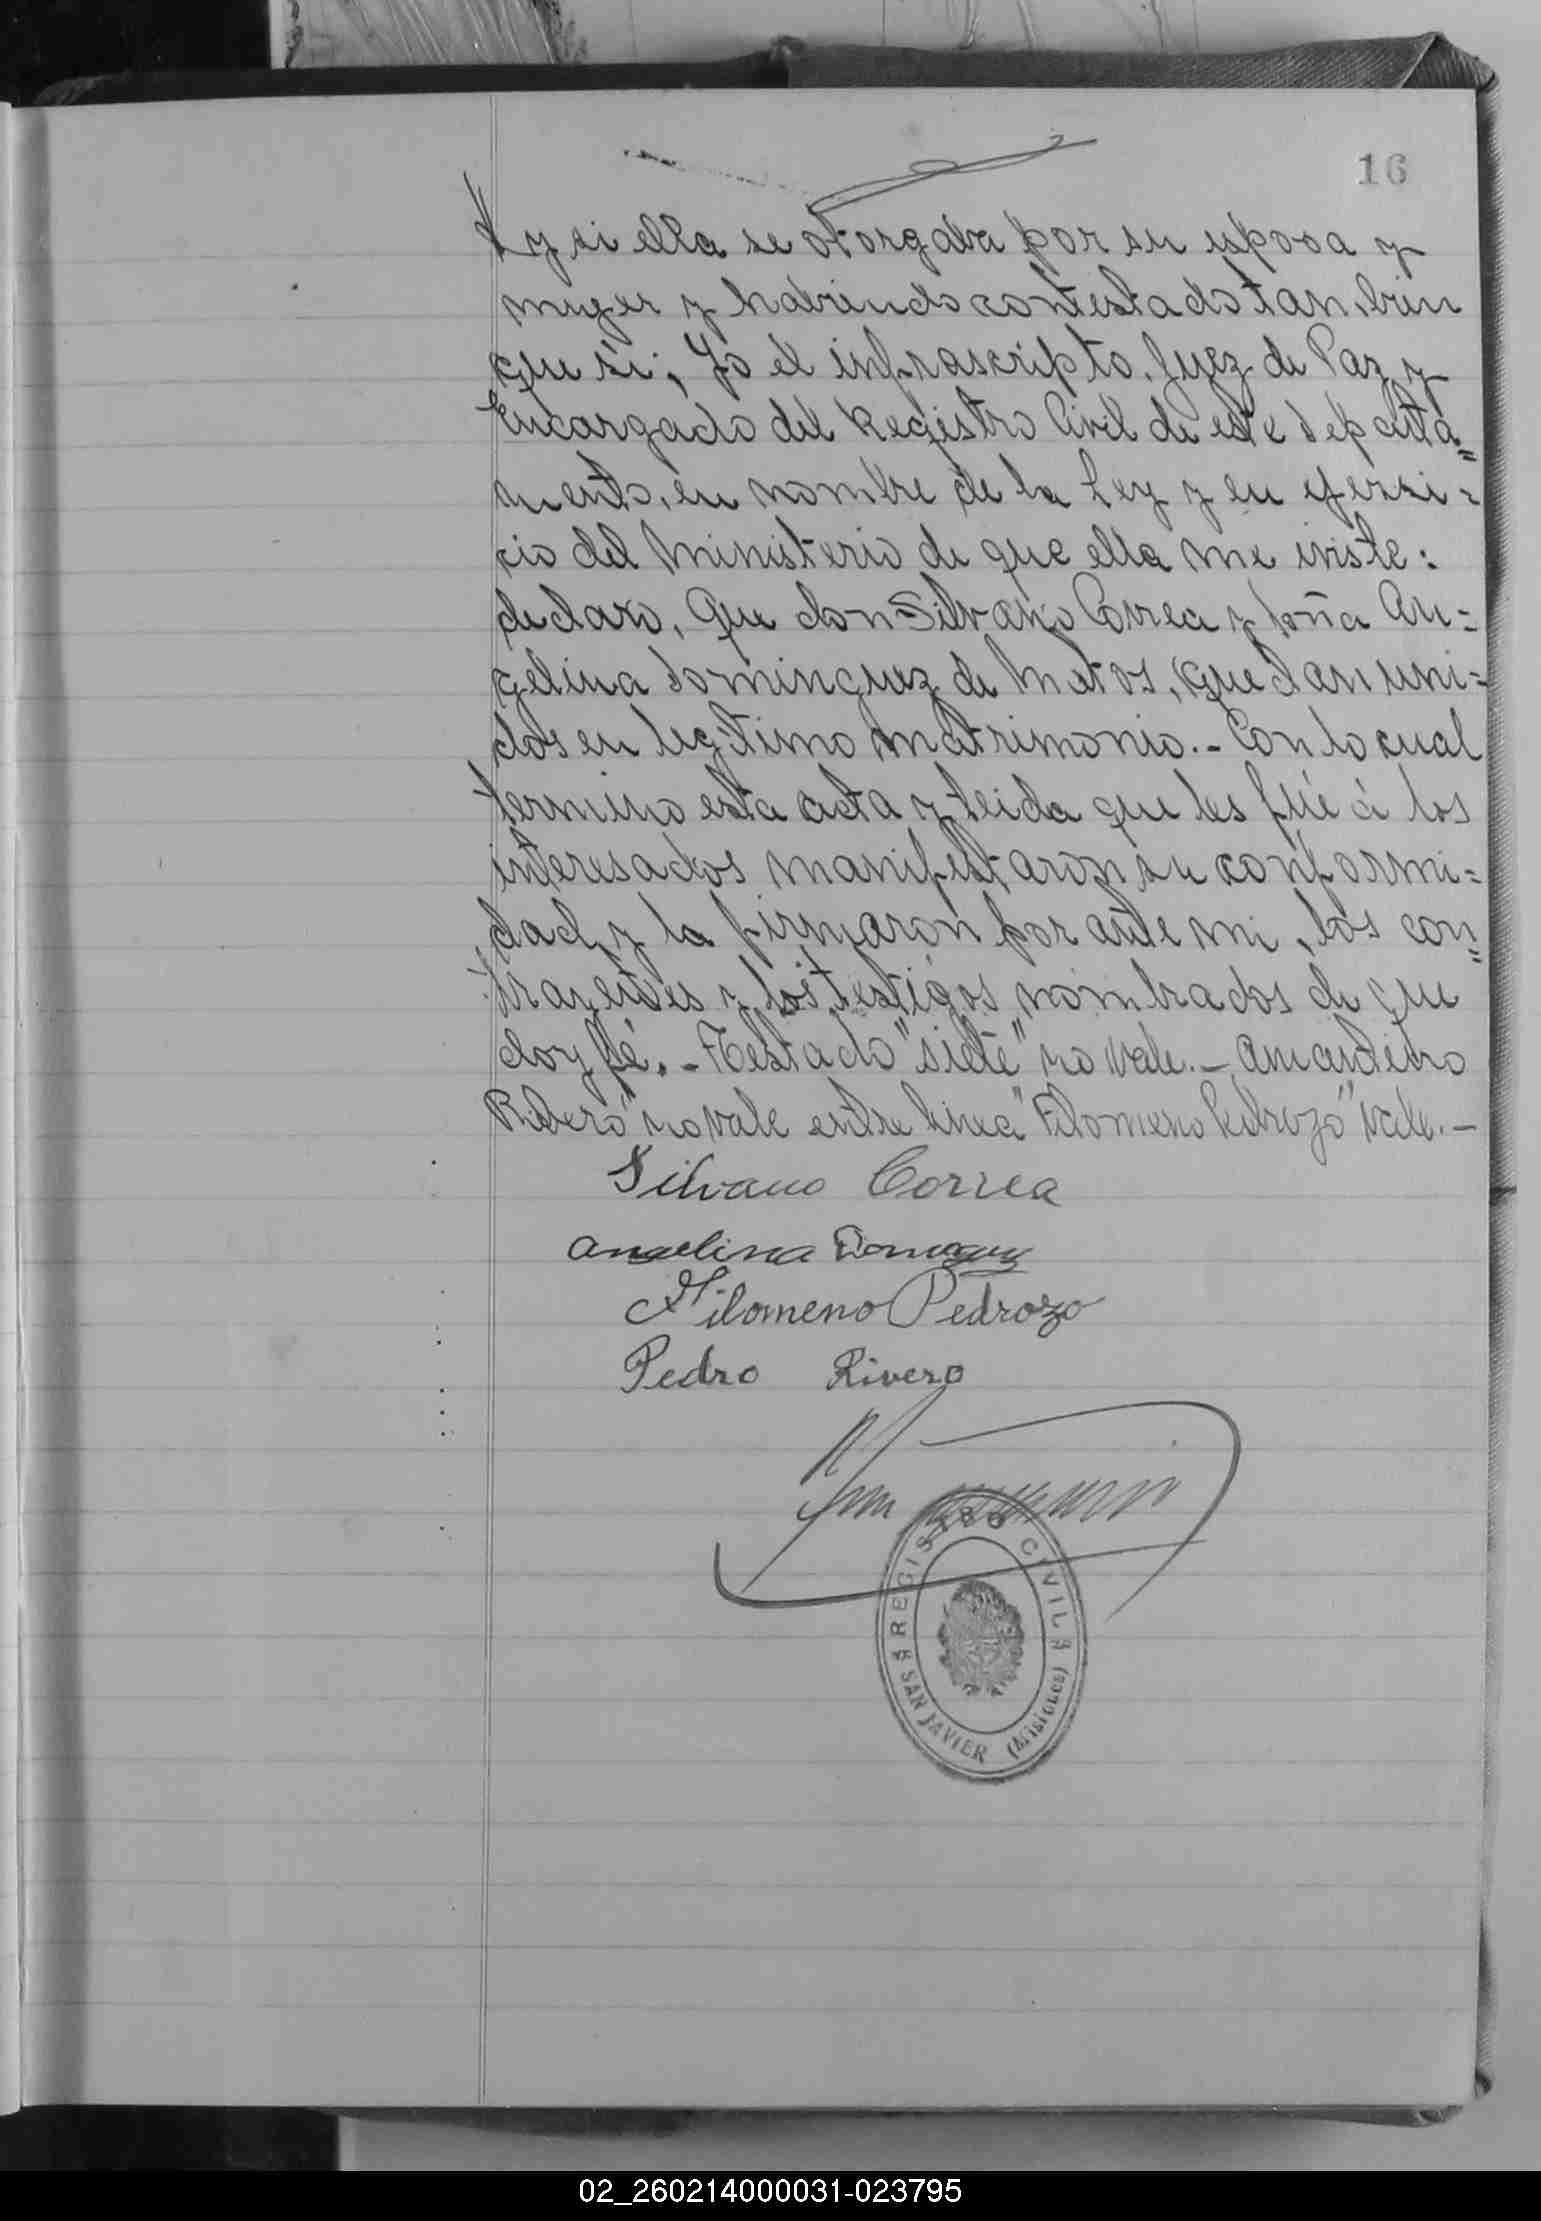 16
y si ella se otorgava por su esposa y
muger y habiendo contestado tambien
que si; Yo el infrascripto, Juez de Paz y
Encargado del Registro Civil de este Departa=
mento, en nombre de la Ley y en ejersi=
cio del Ministerio de que ella me inviste:
declaro, Que don Silvano Correa y doña An=
gelina Dominguez de Matos, quedan uni=
dos en legitimo matrimonio.- Con lo cual
termino esta acta y leida que les fué á los
interesados manifestaron su conformi=
dad, y la firmaron por ante mi, los con=
trayentes y los testigos nombrados de que
doy fé.- Testado "siete" no vale.-
Ribero" no vale entre linea "Filomeno Pedrozo" Vale.-
Silvano Correa
Angelina
Filomeno Pedrozo
Pedro Rivero
REGISTRO CIVIL
SAN JAVIER (Misiones)
02_260214000031-023795